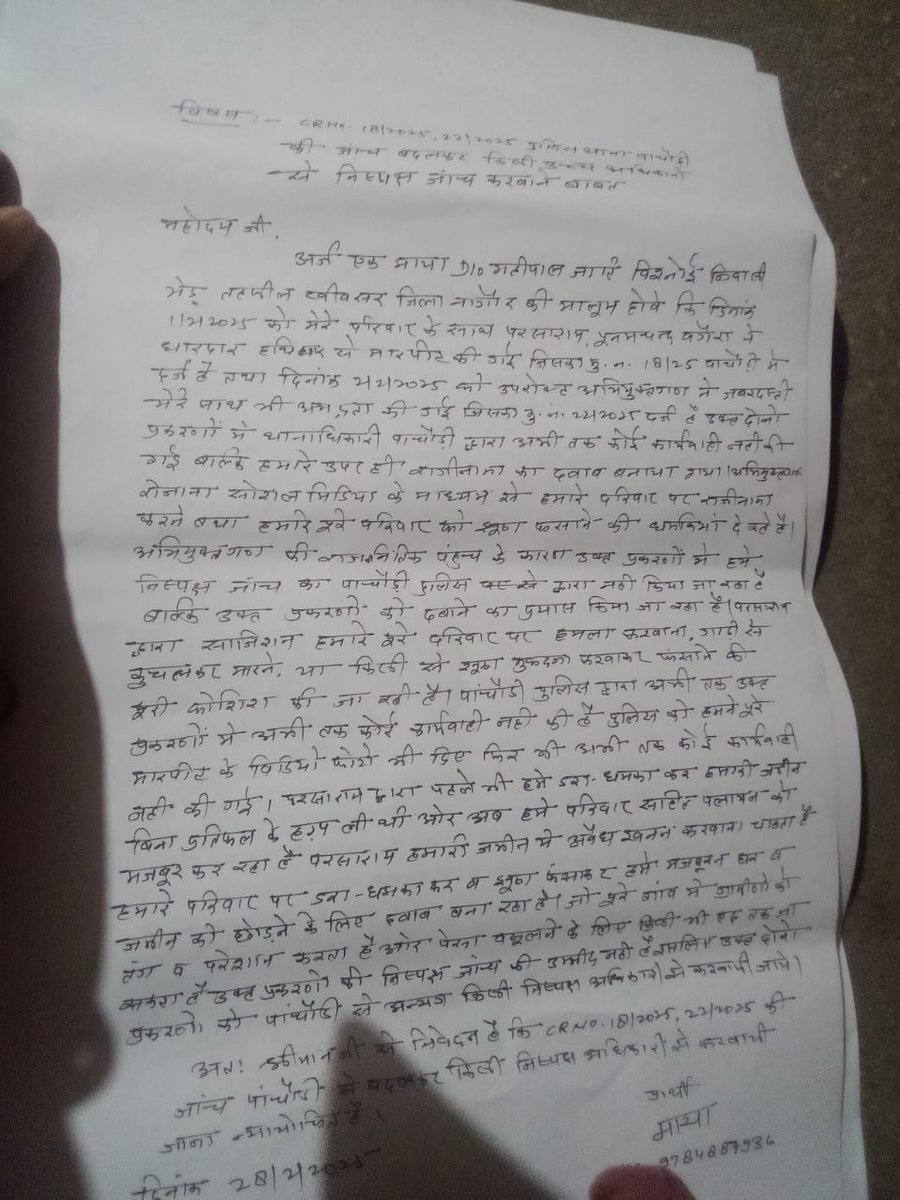 विषय :- CR No. 18/2025, 22/2025 पुलिस थाना पांचौड़ी
की जांच बदलकर किसी उच्च अधिकारी
से निष्पक्ष जांच करवाने बाबत
महोदय जी,
अर्ज एक माया D/o महीपाल जाति विश्नोई निवासी
भेड़ तहसील खींवसर जिला नागौर की मालूम होवे कि दिनांक
1/2/2025 को मेरे परिवार के साथ परसाराम, पुनमचन्द वगैरा ने
धारदार हथियार से मारपीट की गई जिसका मु. न. 18/25 पांचौड़ी में
दर्ज है तथा दिनांक 2/2/2025 को उपरोक्त अभियुक्तगण ने जबरदस्ती
मेरे साथ भी अभद्रता की गई जिसका मु. नं. 22/2025 दर्ज है उक्त दोनो
प्रकरणों में थानाधिकारी पांचौड़ी द्वारा अभी तक कोई कार्यवाही नही की
गई बल्कि हमारे उपर ही राजीनामा का दबाव बनाया गया। अभियुक्तगण
रोजाना सोशल मिडिया के माध्यम से हमारे परिवार पर राजीनामा
करने तथा हमारे पूरे परिवार को झूठा फंसाने की धमकियां दे रहे है।
अभियुक्तगण की राजनितिक पंहुच के कारण उक्त प्रकरणों में हमे
निष्पक्ष जांच का पांचौड़ी पुलिस द्वारा नही किया जा रहा है
बल्कि उक्त प्रकरणो को दबाने का प्रयास किया जा रहा है। परसाराम
द्वारा साजिशन हमारे पूरे परिवार पर हमला करवाना, गाडी से
कुचलकर मारने, या किसी से झूठा मुकदमा करवाकर फंसाने की
पूरी कोशिश की जा रही है। पांचौड़ी पुलिस द्वारा अभी तक उक्त
प्रकरणों मे अभी तक कोई कार्यवाही नही की है पुलिस को हमने पूरे
मारपीट के विडियो फोटो भी दिए फिर भी अभी तक कोई कार्यवाही
नही की गई। परसाराम द्वारा पहले भी हमे डरा-धमका कर हमारी जमीन
बिना प्रतिफल के हड़प ली थी ओर अब हमे परिवार सहित पलायन को
मजबूर कर रहा है परसाराम हमारी जमीन मे अवैध खनन करवाना चाहता है
हमारे परिवार पर डरा-धमका कर व झूठा फंसाकर हमे मजबूरन घर व
जमीन को छोड़ने के लिए दबाव बना रहा है। जो पूरे गांव मे ग्रामीणो को
तंग व परेशान करता है ओर पैसा वसूलने के लिए किसी भी हद तक जा
सकता है उक्त प्रकरणो की निष्पक्ष जांच की उम्मीद नही है इसलिए उक्त दोनो
प्रकरणो को पांचौड़ी से अन्यत्र किसी निष्पक्ष अधिकारी से करवायी जावे।
अतः श्रीमान जी से निवेदन है कि CR No. 18/2025, 22/2025 की
जांच पांचौड़ी से बदलकर किसी निष्पक्ष अधिकारी से करवायी
जाना न्यायोचित है।
प्रार्थी
माया
9784887936
दिनांक 28/2/2025